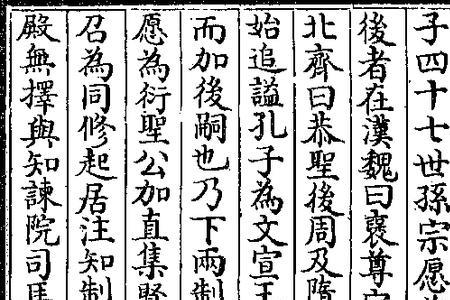 子四十七世孫宗愿
後者在漢魏曰襃尊
北齊曰恭聖後周及隋
始追謚孔子為文宣王
而加後嗣也乃下兩制
愿為衍聖公加直集賢
召為同修起居注知制
殿無擇與知諫院司馬